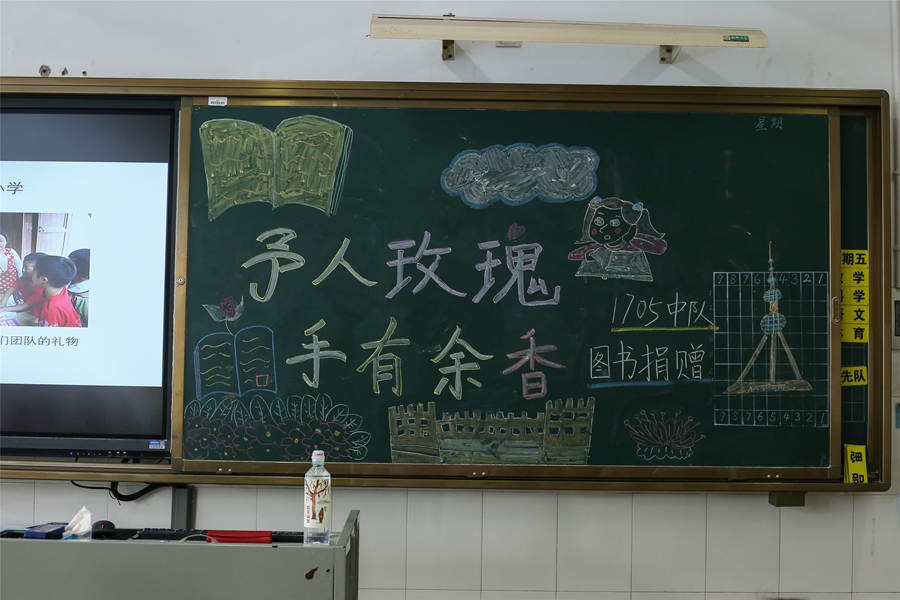 星期
小学
们团队的礼物
予人玫瑰
手有余香
1705中队
图书捐赠
9 8 7 6 5 4 3 2 1
9 8 7 6 5 4 3 2 1
期五
学
学
语文
体育
先队